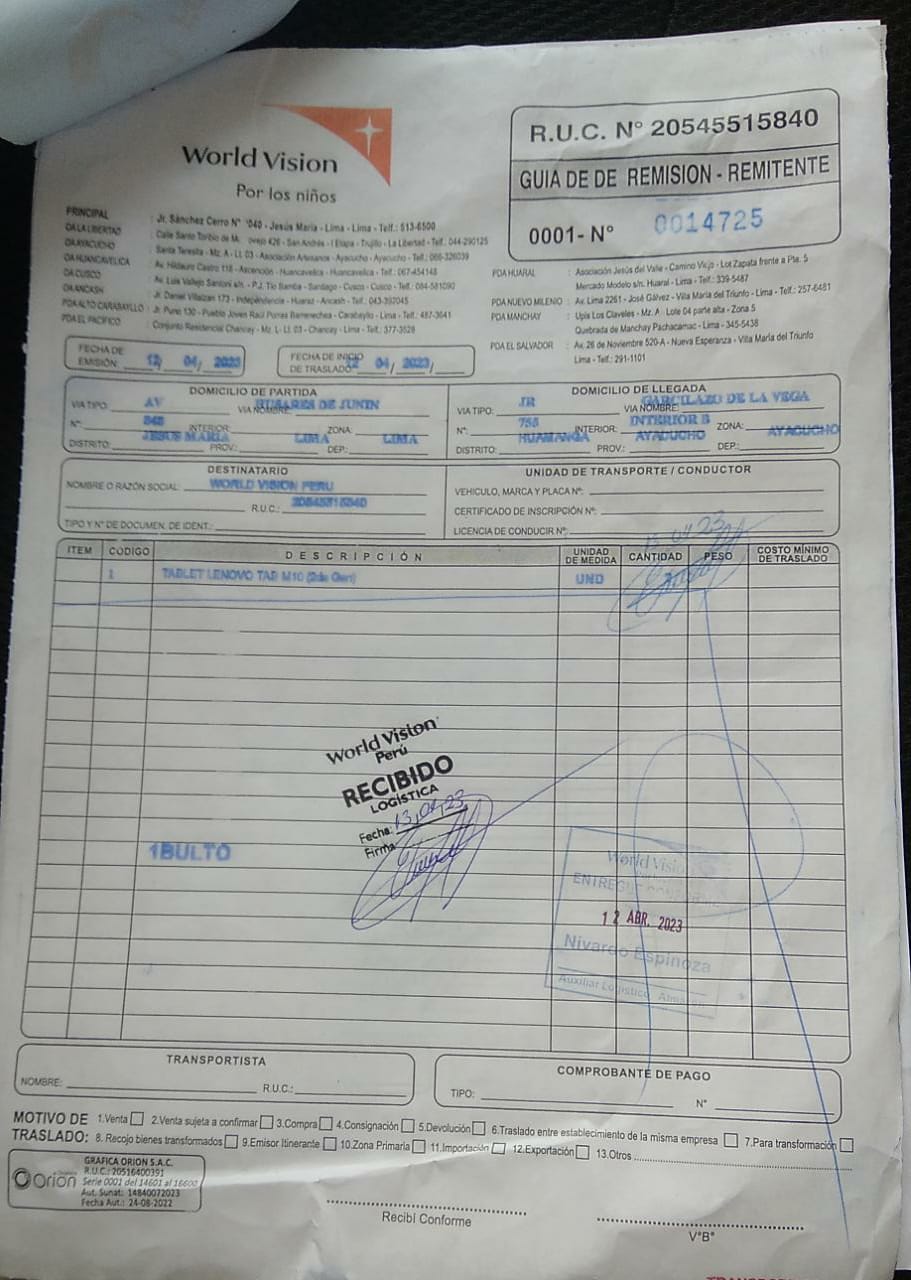 World Vision
Por los niños
R.U.C. N° 20545515840
GUIA DE DE REMISION - REMITENTE
0001- N° 0014725
PRINCIPAL : Jr. Sánchez Cerro N° 040 - Jesús María - Lima - Lima - Telf.: 513-6500
OA LA LIBERTAD : Calle Santo Toribio de M ovejo 426 - San Andrés - I Etapa - Trujillo - La Libertad - Telf.: 044-290125
OA AYACUCHO : Santa Teresita - Mz. A - Lt. 03 - Asociación Artesanos - Ayacucho - Ayacucho - Telf.: 066-326039
OA HUANCAVELICA : Av. Hildauro Castro 118 - Ascención - Huancavelica - Huancavelica - Telf.: 067-454148
OA CUSCO : Av. Luis Vallejo Santoni s/n. - P.J. Tío Bamba - Santiago - Cusco - Cusco - Telf.: 084-581090
OA ANCASH : Jr. Daniel Villaizan 173 - Independencia - Huaraz - Ancash - Telf.: 043-397045
PDA ALTO CARABAYLLO : Jr. Puno 130 - Pueblo Joven Raúl Porras Barrenechea - Carabayllo - Lima - Telf.: 487-3641
PDA EL PACÍFICO : Conjunto Residencial Chancay - Mz. L - Lt. 03 - Chancay - Lima - Telf.: 377-3528
PDA HUARAL : Asociación Jesús del Valle - Camino Viejo - Lot Zapata frente a Pte. 5
Mercado Modelo s/n. Huaral - Lima - Telf.: 339-5487
PDA NUEVO MILENIO : Av. Lima 2261 - José Gálvez - Villa María del Triunfo - Lima - Telf.: 257-6481
PDA MANCHAY : Upis Los Claveles - Mz. A - Lote 04 parte alta - Zona 5
Quebrada de Manchay Pachacamac - Lima - 345-5438
PDA EL SALVADOR : Av. 26 de Noviembre 520-A - Nueva Esperanza - Villa María del Triunfo
Lima - Telf.: 291-1101
FECHA DE EMISIÓN: 12 / 04 / 2023
FECHA DE INICIO DE TRASLADO 12 04 / 2023 /
DOMICILIO DE PARTIDA
VIA TIPO: AV VIA NOMBRE: HUSARES DE JUNIN
N°: INTERIOR: ZONA:
DISTRITO: JESUS MARIA PROV.: LIMA DEP.: LIMA
DOMICILIO DE LLEGADA
VIA TIPO: JR VIA NOMBRE: GARCILAZO DE LA VEGA
N°: 755 INTERIOR: INTERIOR B ZONA:
DISTRITO: HUAMANGA PROV.: AYACUCHO DEP.: AYACUCHO
DESTINATARIO
NOMBRE O RAZÓN SOCIAL: WORLD VISION PERU
R.U.C.: 20545515840
TIPO Y N° DE DOCUMEN. DE IDENT.:
UNIDAD DE TRANSPORTE / CONDUCTOR
VEHICULO, MARCA Y PLACA N°:
CERTIFICADO DE INSCRIPCIÓN N°:
LICENCIA DE CONDUCIR N°:
ITEM CÓDIGO DESCRIPCIÓN UNIDAD DE MEDIDA CANTIDAD PESO COSTO MÍNIMO DE TRASLADO
1 TABLET LENOVO TAB M10 (2da Gen) UND
World Vision
Perú
RECIBIDO
LOGÍSTICA
Fecha: 13,04,23
Firma
1BULTO
World Vision
12 ABR. 2023
Nivardo Espinoza
Auxiliar Logístico
TRANSPORTISTA
NOMBRE: R.U.C.:
COMPROBANTE DE PAGO
TIPO: N°
MOTIVO DE TRASLADO: 1.Venta 2.Venta sujeta a confirmar 3.Compra 4.Consignación 5.Devolución 6.Traslado entre establecimiento de la misma empresa 7.Para transformación
8. Recojo bienes transformados 9.Emisor Itinerante 10.Zona Primaria 11.Importación 12.Exportación 13.Otros
Orión
GRAFICA ORION S.A.C.
R.U.C.: 20516400391
Serie 0001 del 14601 al 16600
Aut. Sunat: 14840072023
Fecha Aut.: 24-08-2022
Recibí Conforme
V°B°